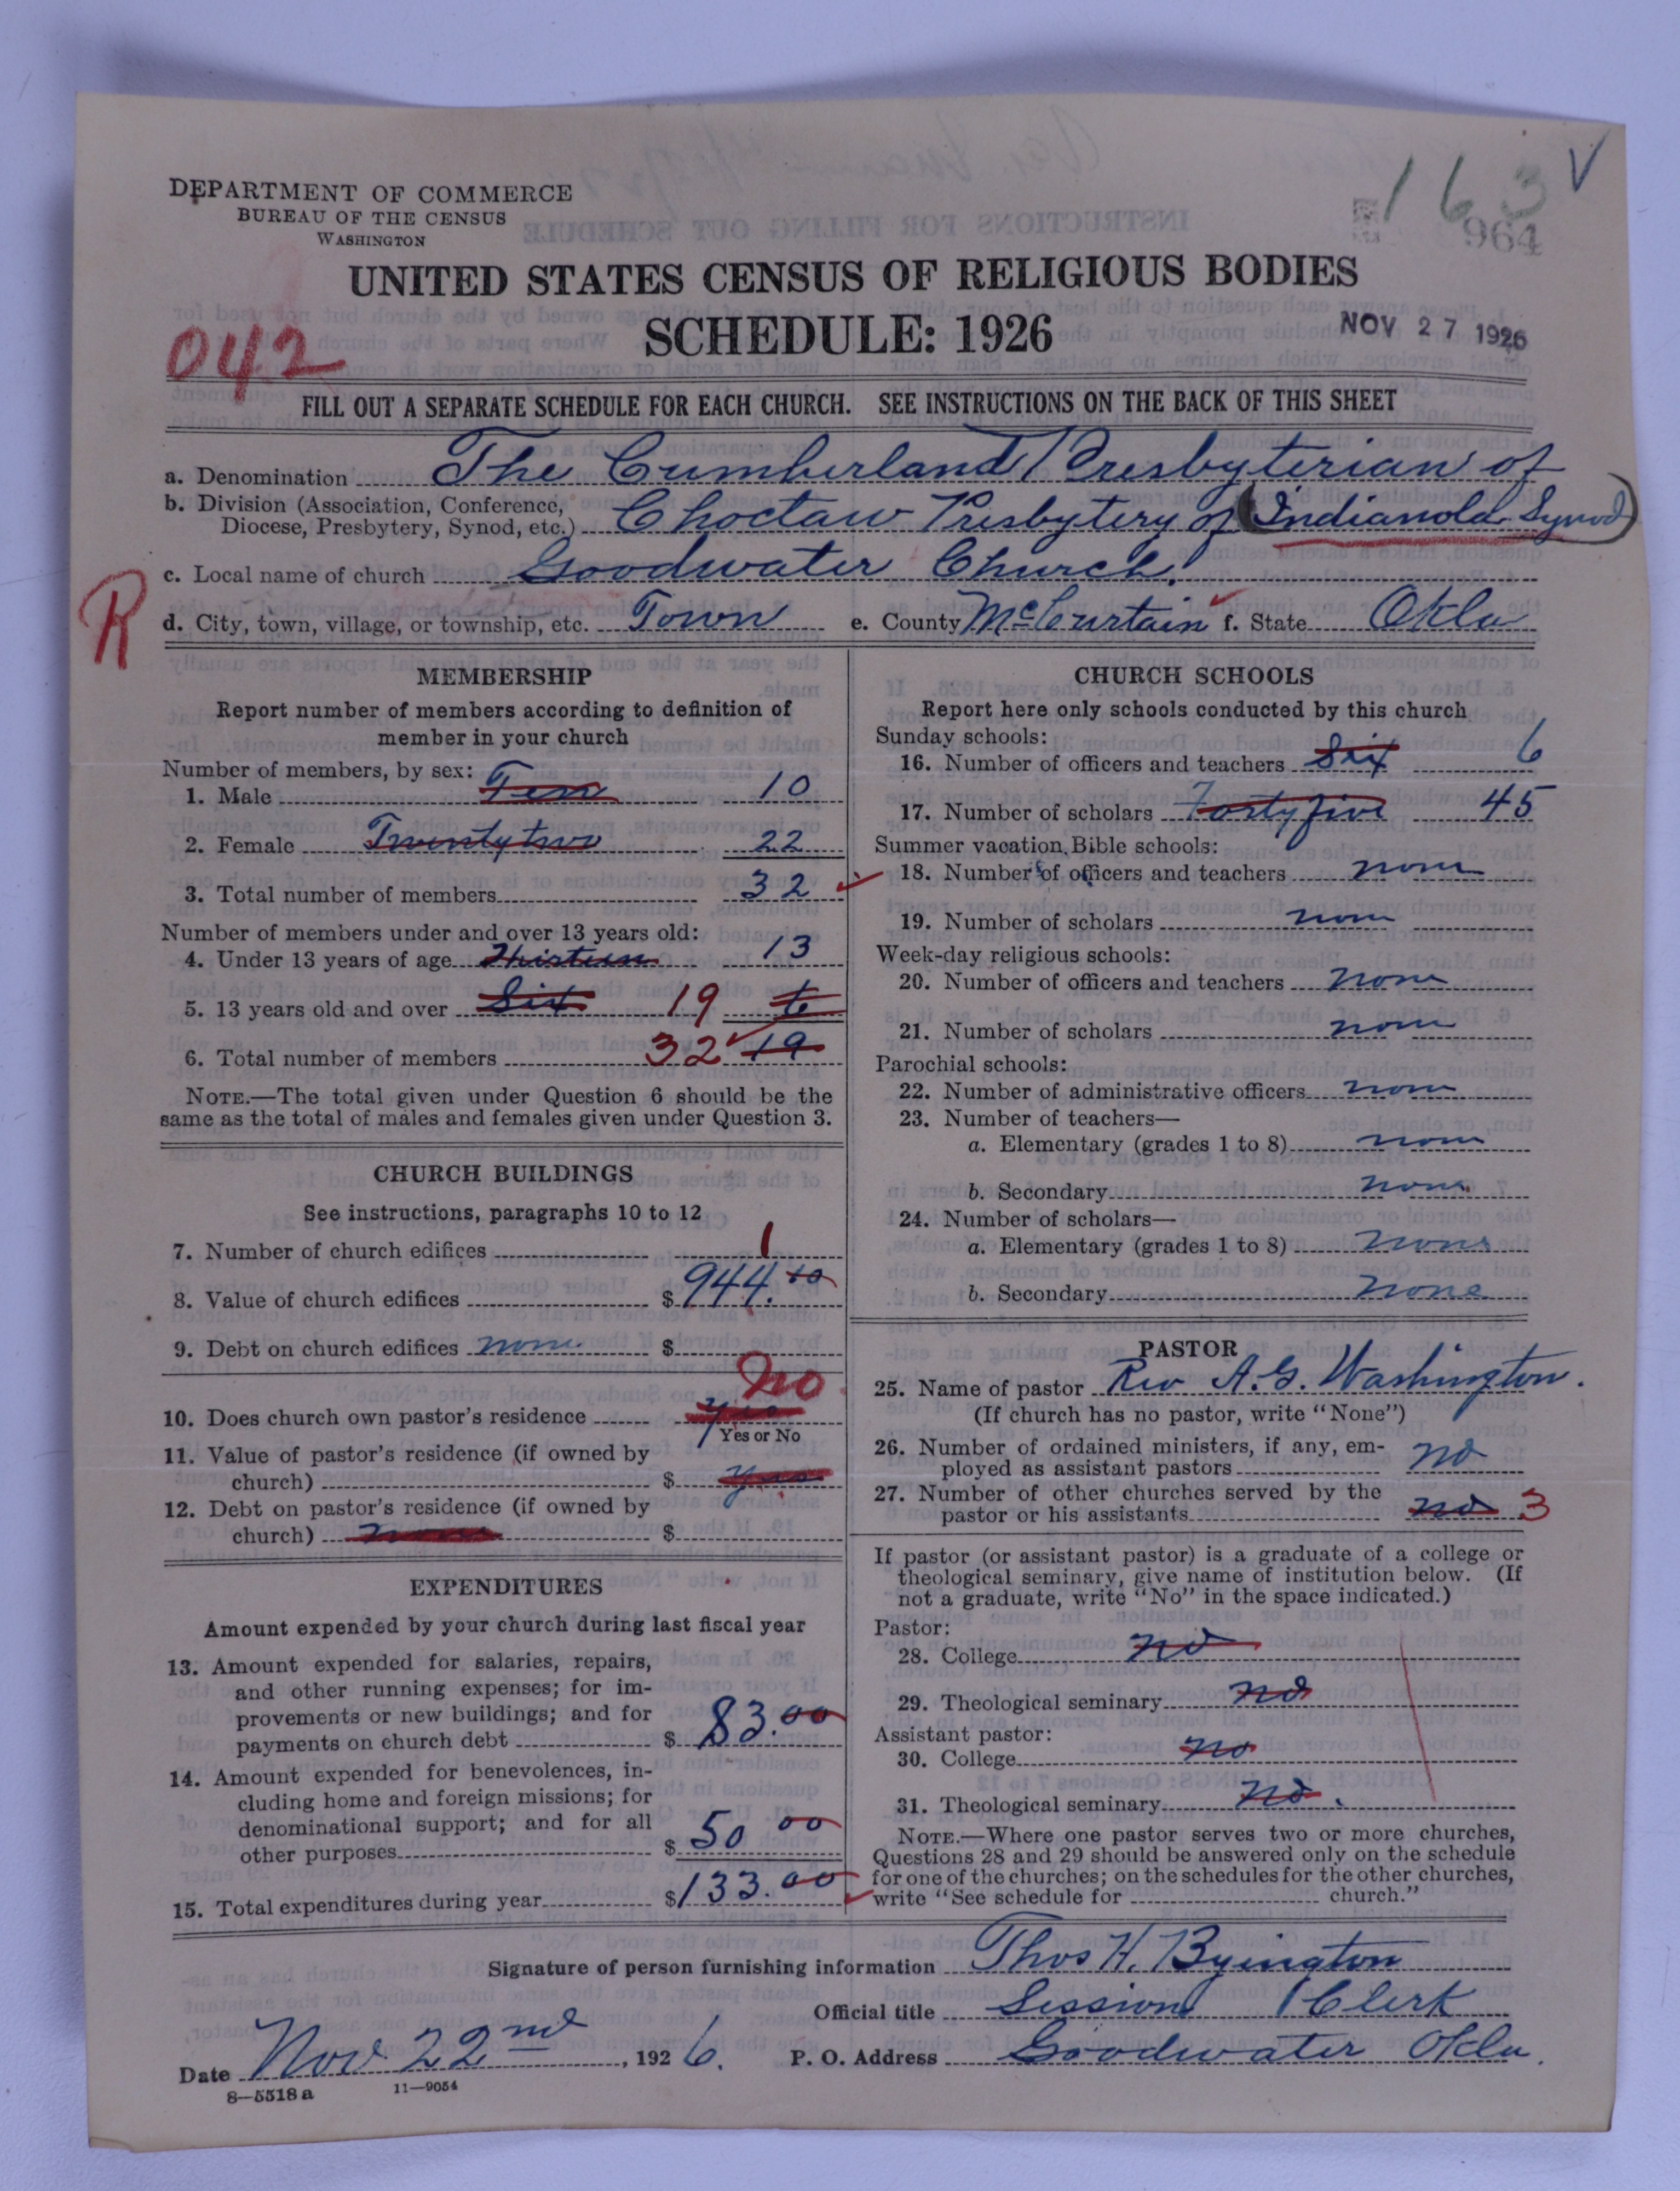 DEPARTMENT OF COMMERCE
BUREAU OF THE CENSUS
WASHINGTON
163 V
964
UNITED STATES CENSUS OF RELIGIOUS BODIES
SCHEDULE: 1926
NOV 27 1926
042
FILL OUT A SEPARATE SCHEDULE FOR EACH CHURCH. SEE INSTRUCTIONS ON THE BACK OF THIS SHEET
a. Denomination The Cumberland Presbyterian of
b. Division (Association, Conference, Diocese, Presbytery, Synod, etc.) Choctaw Presbytery of (Indianola Synod)
c. Local name of church Goodwater Church.
R
d. City, town, village, or township, etc. Town e. County McCurtain f. State Okla
MEMBERSHIP
Report number of members according to definition of
member in your church
Number of members, by sex:
1. Male Ten 10
2. Female Twenty two 22
3. Total number of members 32
Number of members under and over 13 years old:
4. Under 13 years of age Thirteen 13
5. 13 years old and over Six 19 6
6. Total number of members 32 19
NOTE.—The total given under Question 6 should be the
same as the total of males and females given under Question 3.
CHURCH BUILDINGS
See instructions, paragraphs 10 to 12
7. Number of church edifices 1
8. Value of church edifices $944.10
9. Debt on church edifices none $
No
10. Does church own pastor's residence yes
Yes or No
11. Value of pastor's residence (if owned by
church) $ yes
12. Debt on pastor's residence (if owned by
church) none $
EXPENDITURES
Amount expended by your church during last fiscal year
13. Amount expended for salaries, repairs,
and other running expenses; for im-
provements or new buildings; and for
payments on church debt $83.00
14. Amount expended for benevolences, in-
cluding home and foreign missions; for
denominational support; and for all
other purposes $50 00
15. Total expenditures during year $133.00
CHURCH SCHOOLS
Report here only schools conducted by this church
Sunday schools:
16. Number of officers and teachers Six 6
17. Number of scholars Forty five 45
Summer vacation Bible schools:
18. Number of officers and teachers none
19. Number of scholars none
Week-day religious schools:
20. Number of officers and teachers none
21. Number of scholars none
Parochial schools:
22. Number of administrative officers none
23. Number of teachers—
a. Elementary (grades 1 to 8) none
b. Secondary none
24. Number of scholars—
a. Elementary (grades 1 to 8) none
b. Secondary none
PASTOR
25. Name of pastor Rev A. G. Washington.
(If church has no pastor, write "None")
26. Number of ordained ministers, if any, em-
ployed as assistant pastors no
27. Number of other churches served by the
pastor or his assistants no 3
If pastor (or assistant pastor) is a graduate of a college or
theological seminary, give name of institution below. (If
not a graduate, write "No" in the space indicated.)
Pastor:
28. College no
29. Theological seminary no
Assistant pastor:
30. College no
31. Theological seminary no.
NOTE.—Where one pastor serves two or more churches,
Questions 28 and 29 should be answered only on the schedule
for one of the churches; on the schedules for the other churches,
write "See schedule for church."
Signature of person furnishing information Thos H. Byington
Official title Session Clerk
Date Nov 22nd, 1926. P. O. Address Goodwater Okla.
8—5518a 11—9054